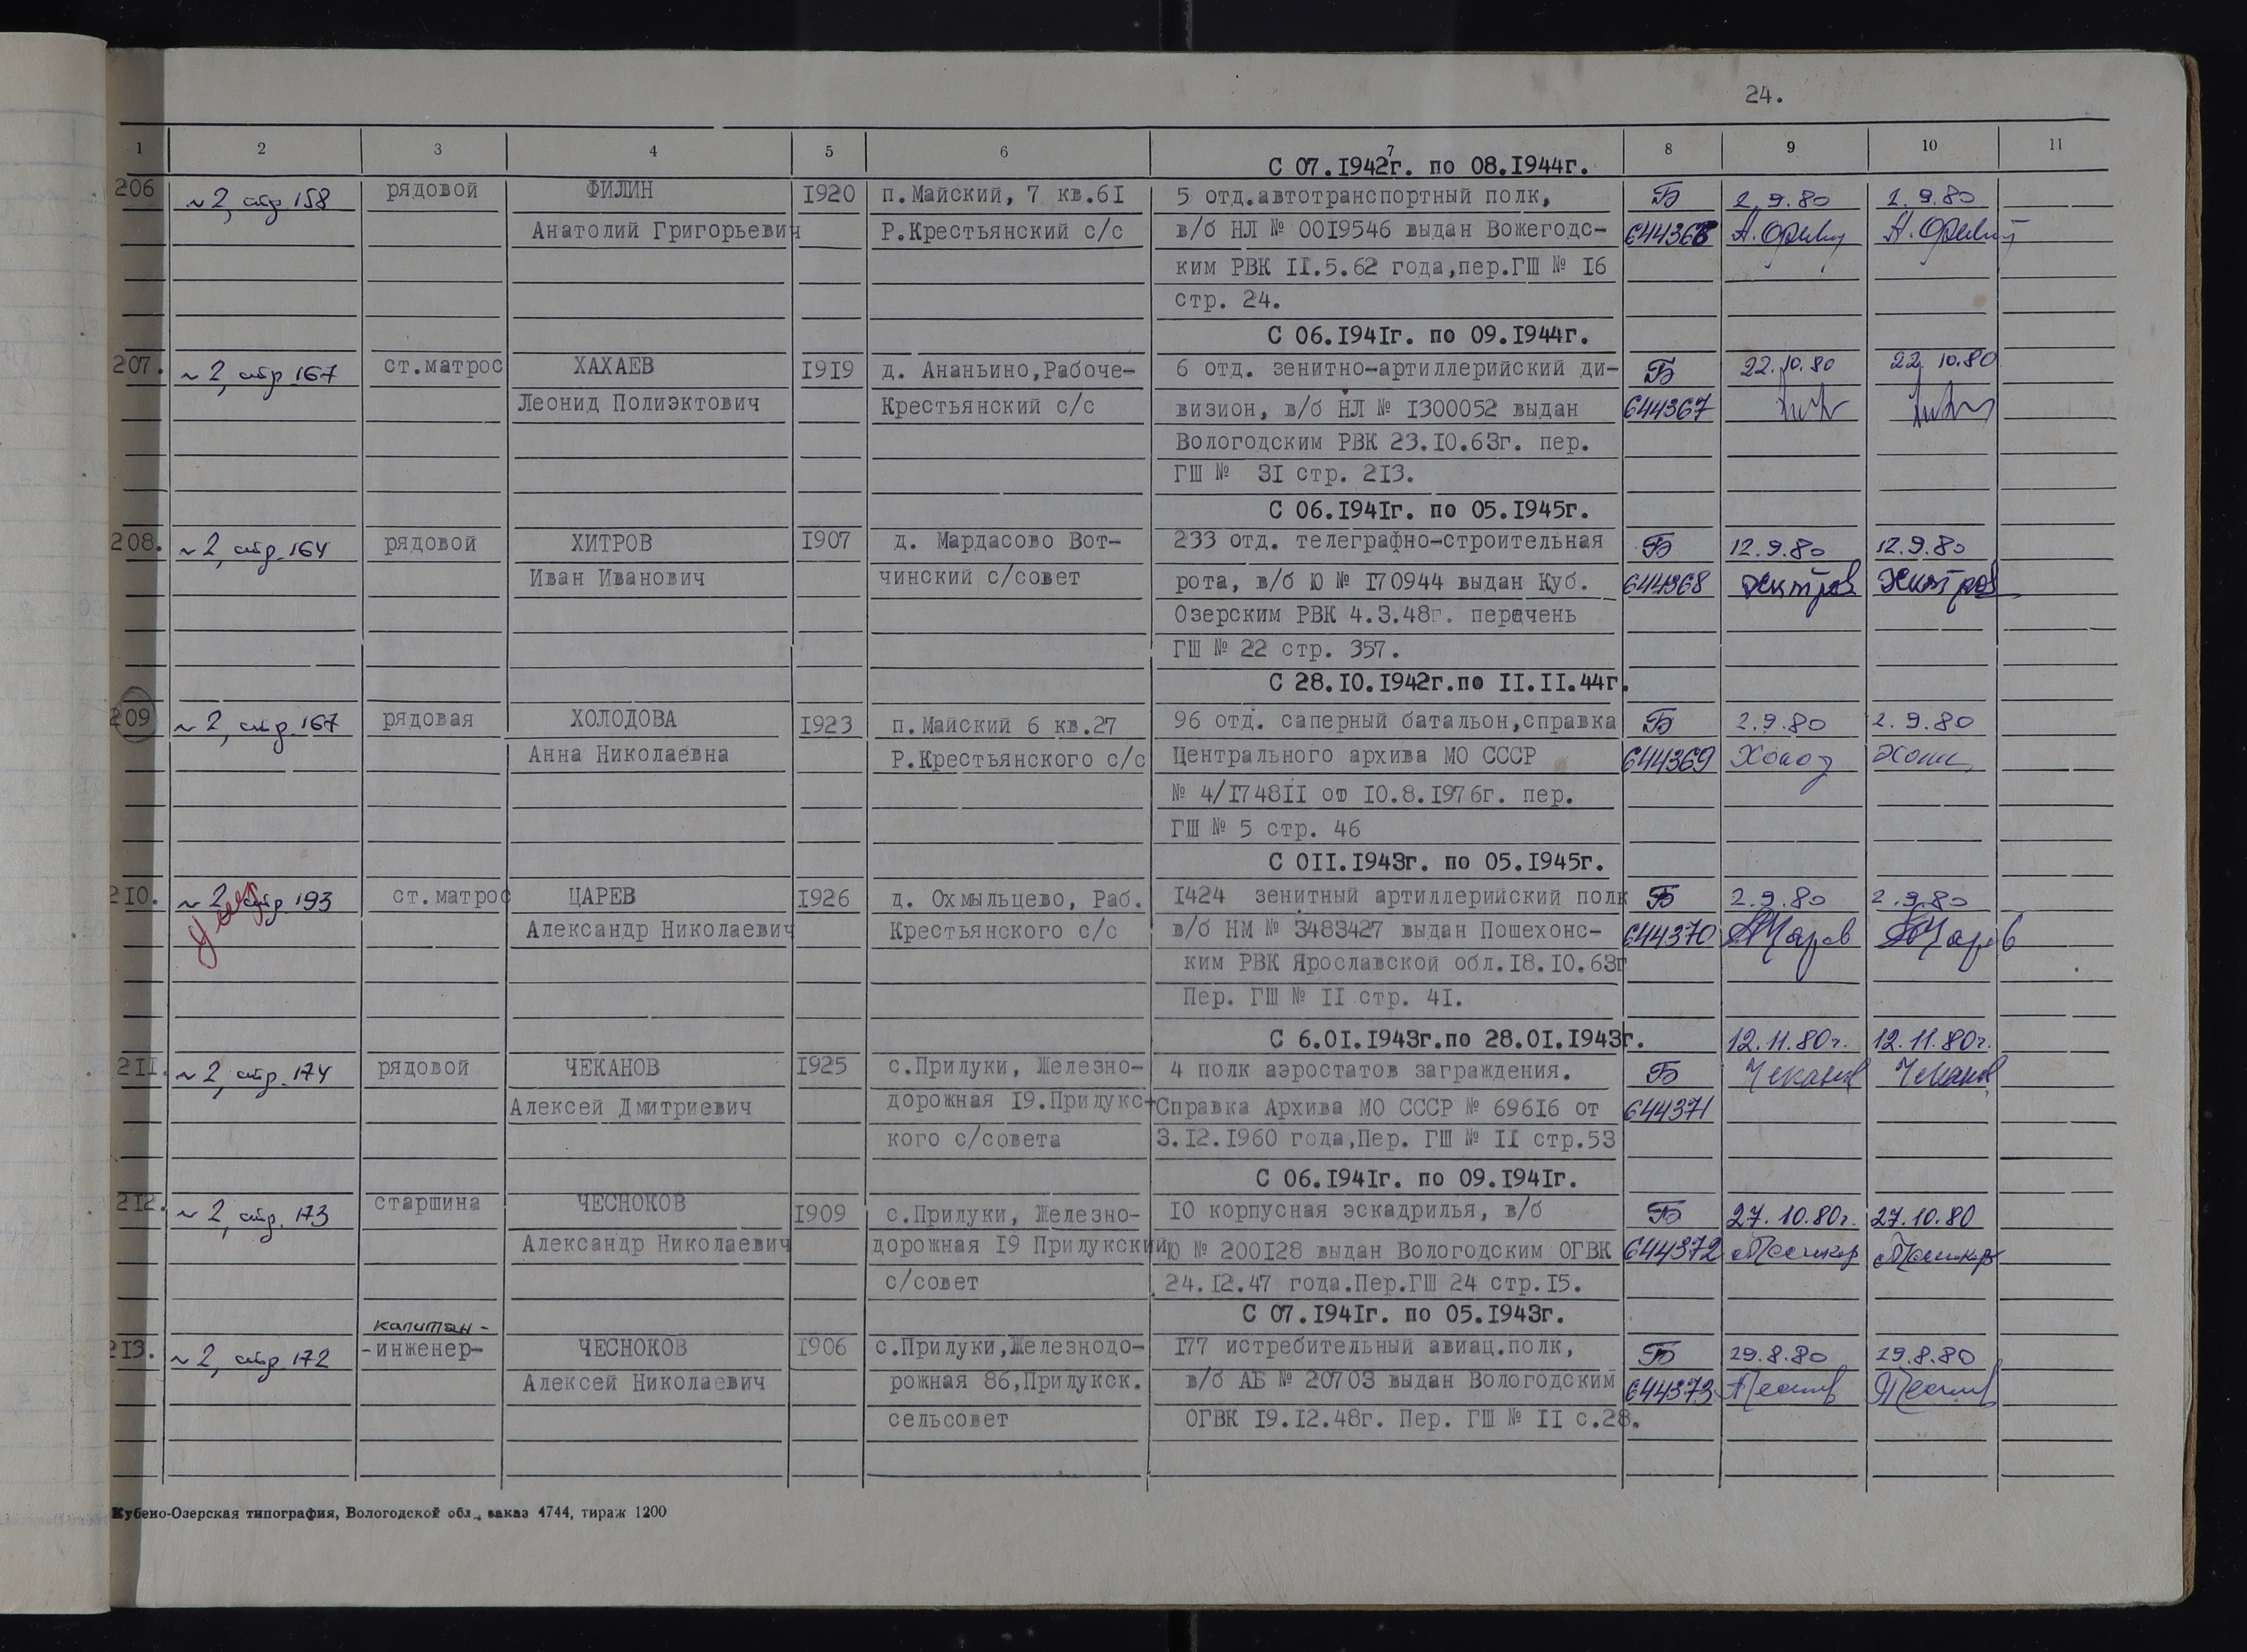 24.
1 2 3 4 5 6 7 8 9 10 11
С 07.1942г. по 08.1944г.
206 ~2, стр 158 рядовой ФИЛИН 1920 п.Майский, 7 кв.61 5 отд.автотранспортный полк, Б 2.9.80 2.9.80
Анатолий Григорьевич Р.Крестьянский с/с в/б НЛ № 0019546 выдан Вожегодс- 644366
ким РВК 11.5.62 года,пер.ГШ № 16
стр. 24.
С 06.1941г. по 09.1944г.
207. ~2, стр 167 ст.матрос ХАХАЕВ 1919 д. Ананьино,Рабоче- 6 отд. зенитно-артиллерийский ди- Б 22.10.80 22.10.80
Леонид Полиэктович Крестьянский с/с визион, в/б НЛ № 1300052 выдан 644367
Вологодским РВК 23.10.63г. пер.
ГШ № 31 стр. 213.
С 06.1941г. по 05.1945г.
208. ~2, стр.164 рядовой ХИТРОВ 1907 д. Мардасово Вот- 233 отд. телеграфно-строительная Б 12.9.80 12.9.80
Иван Иванович чинский с/совет рота, в/б Ю № 170944 выдан Куб. 644368 Хитров Хитров
Озерским РВК 4.3.48г. перечень
ГШ № 22 стр. 357.
С 28.10.1942г.по 11.11.44г.
209 ~2, стр.167 рядовая ХОЛОДОВА 1923 п.Майский 6 кв.27 96 отд. саперный батальон,справка Б 2.9.80 2.9.80
Анна Николаевна Р.Крестьянского с/с Центрального архива МО СССР 644369
№ 4/174811 от 10.8.1976г. пер.
ГШ № 5 стр. 46
С 011.1943г. по 05.1945г.
210. ~2, стр 193 ст.матрос ЦАРЕВ 1926 д. Охмыльцево, Раб. 1424 зенитный артиллерийский полк Б 2.9.80 2.9.80
Александр Николаевич Крестьянского с/с в/б НМ № 3483427 выдан Пошехонс- 644370 АЦарев АЦарев
ким РВК Ярославской обл.18.10.63г
Пер. ГШ № 11 стр. 41.
С 6.01.1943г.по 28.01.1943г. 12.11.80г. 12.11.80г.
211. ~2, стр.174 рядовой ЧЕКАНОВ 1925 с.Прилуки, Железно- 4 полк аэростатов заграждения. Б Чеканов Чеканов
Алексей Дмитриевич дорожная 19.Прилукс- Справка Архива МО СССР № 69616 от 644371
кого с/совета 3.12.1960 года,Пер. ГШ № 11 стр.53
С 06.1941г. по 09.1941г.
212. ~2, стр.173 старшина ЧЕСНОКОВ 1909 с.Прилуки, Железно- 10 корпусная эскадрилья, в/б Б 27.10.80г. 27.10.80
Александр Николаевич дорожная 19 Прилукский Ю № 200128 выдан Вологодским ОГВК 644372
с/совет 24.12.47 года.Пер.ГШ 24 стр.15.
С 07.1941г. по 05.1943г.
капитан-
213. ~2, стр 172 -инженер- ЧЕСНОКОВ 1906 с.Прилуки,Железнодо- 177 истребительный авиац.полк, Б 29.8.80 29.8.80
Алексей Николаевич рожная 86,Прилукск. в/б АБ № 20703 выдан Вологодским 644373
сельсовет ОГВК 19.12.48г. Пер. ГШ № 11 с.28.
Кубено-Озерская типография, Вологодской обл., заказ 4744, тираж 1200